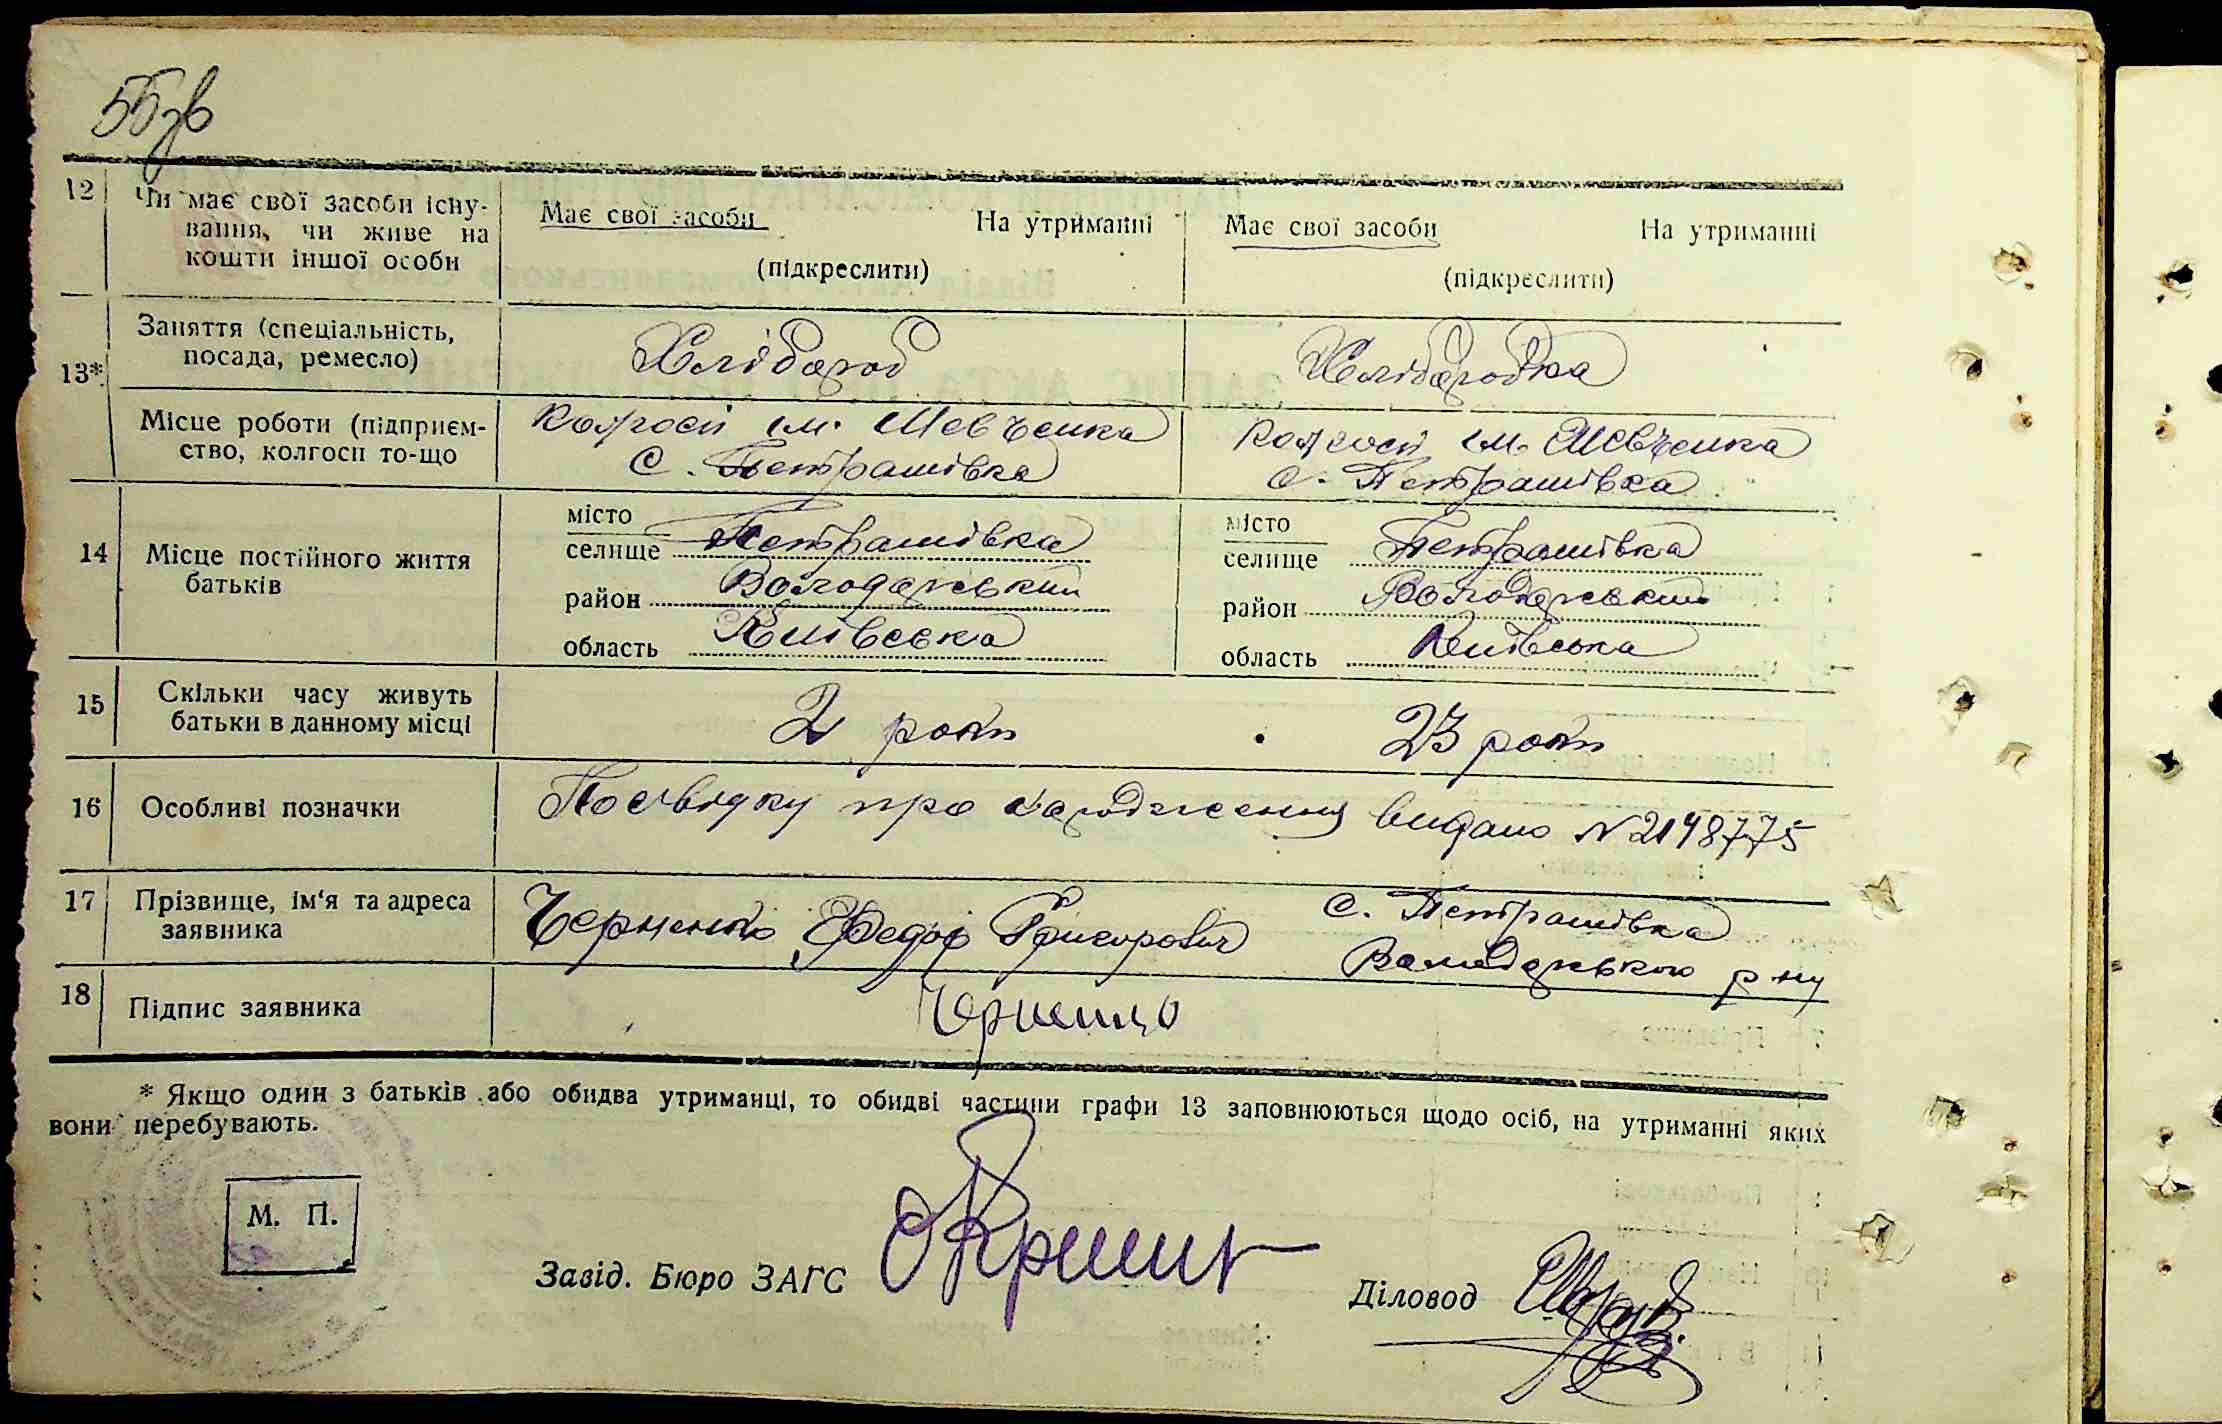 55зв
12 Чи має свої засоби існу- Має свої засоби На утриманні Має свої засоби На утриманні
вання, чи живе на
кошти іншої особи (підкреслити) (підкреслити)
13* Заняття (спеціальність, Хлібороб Хлібородка
посада, ремесло)
Місце роботи (підприєм- Колгосп ім. Шевченка Колгосп ім. Шевченка
ство, колгосп то-що с. Петрашівка с. Петрашівка
місто місто
14 Місце постійного життя селище Петрашівка селище Петрашівка
батьків район Володарський район Володарський
область Київська область Київська
15 Скільки часу живуть 2 роки 23 роки
батьки в данному місці
16 Особливі позначки Посвідку про народження видано N 2198775
17 Прізвище, ім'я та адреса Черненко Федор Григорович с. Петрашівка
заявника Володарського р ну
18 Підпис заявника Черненко
* Якщо один з батьків або обидва утриманці, то обидві частини графи 13 заповнюються щодо осіб, на утриманні яких
вони перебувають.
М. П.
Завід. Бюро ЗАГС
Діловод